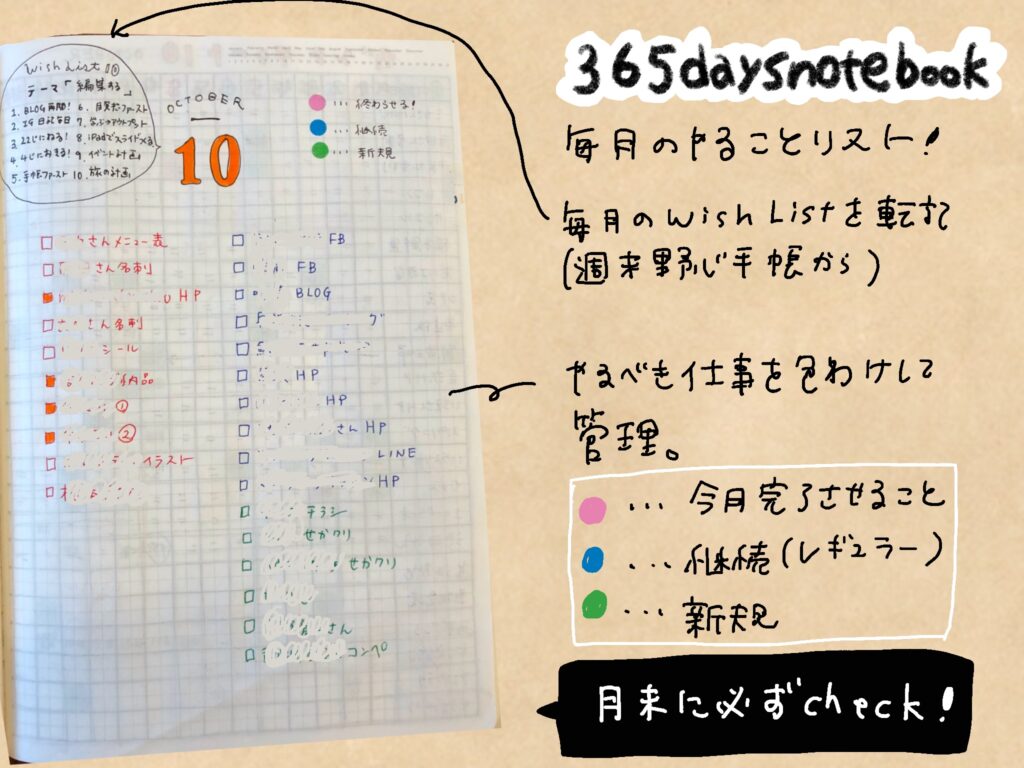 Wish List 10
テーマ「編集する」
1. BLOG再開!
2. 1行日記毎日
3. 22じにねる!
4. 4じにおきる!
5. 手帳ファースト
6. 目覚めファースト
7. 学ぶ→アウトプット
8. iPadでスライドつくる
9. イベント計画
10. 旅の計画
OCTOBER
10
… 終わらせる!
… 継続
… 新規
さんメニュー表
さん名刺
HP
さん名刺
シール
納品
①
②
イラスト
FB
FB
BLOG
グ
HP
HP
さんHP
LINE
HP
チラシ
せかクリ
せかクリ
さん
コンペ
365daysnotebook
毎月のやることリスト!
毎月のwish Listを転記
(週末野心手帳から)
やるべき仕事を色わけして
管理。
… 今月完了させること
… 継続(レギュラー)
… 新規
月末に必ずcheck!